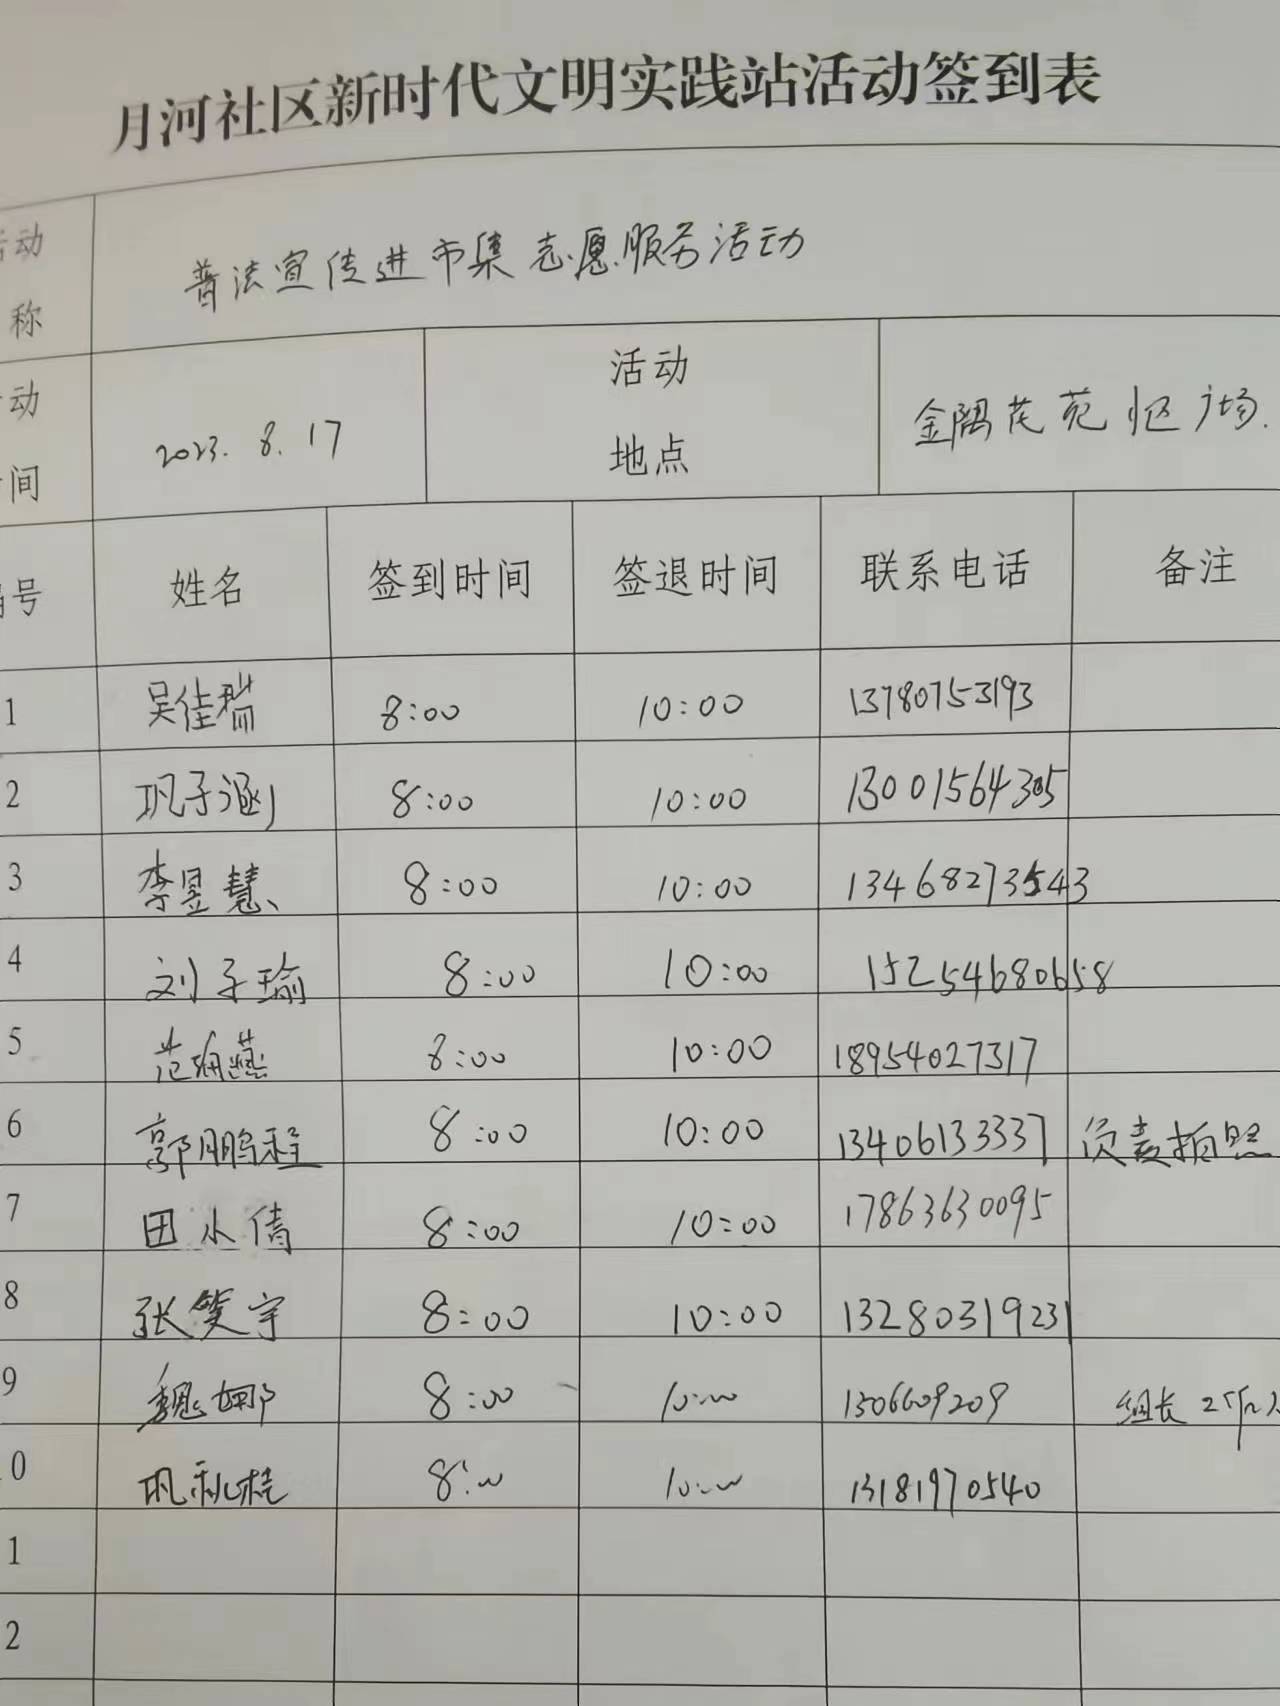 月河社区新时代文明实践站活动签到表
活动 普法宣传进市集志愿服务活动
称
动 2023.8.17 活动 金隅花苑小区广场.
间 地点
号 姓名 签到时间 签退时间 联系电话 备注
1 吴佳瑞 8:00 10:00 13780753193
2 巩子涵 8:00 10:00 13001564305
3 李昱慧 8:00 10:00 13468273543
4 刘子瑜 8:00 10:00 15254680658
5 范 8:00 10:00 18954027317
6 郭鹏程 8:00 10:00 13406133337 负责拍照
7 田小倩 8:00 10:00 17863630095
8 张笑宇 8:00 10:00 13280319231
9 魏娜 8:00 10:00 组长
0 巩 8:00 10:00 13181970540
1
2